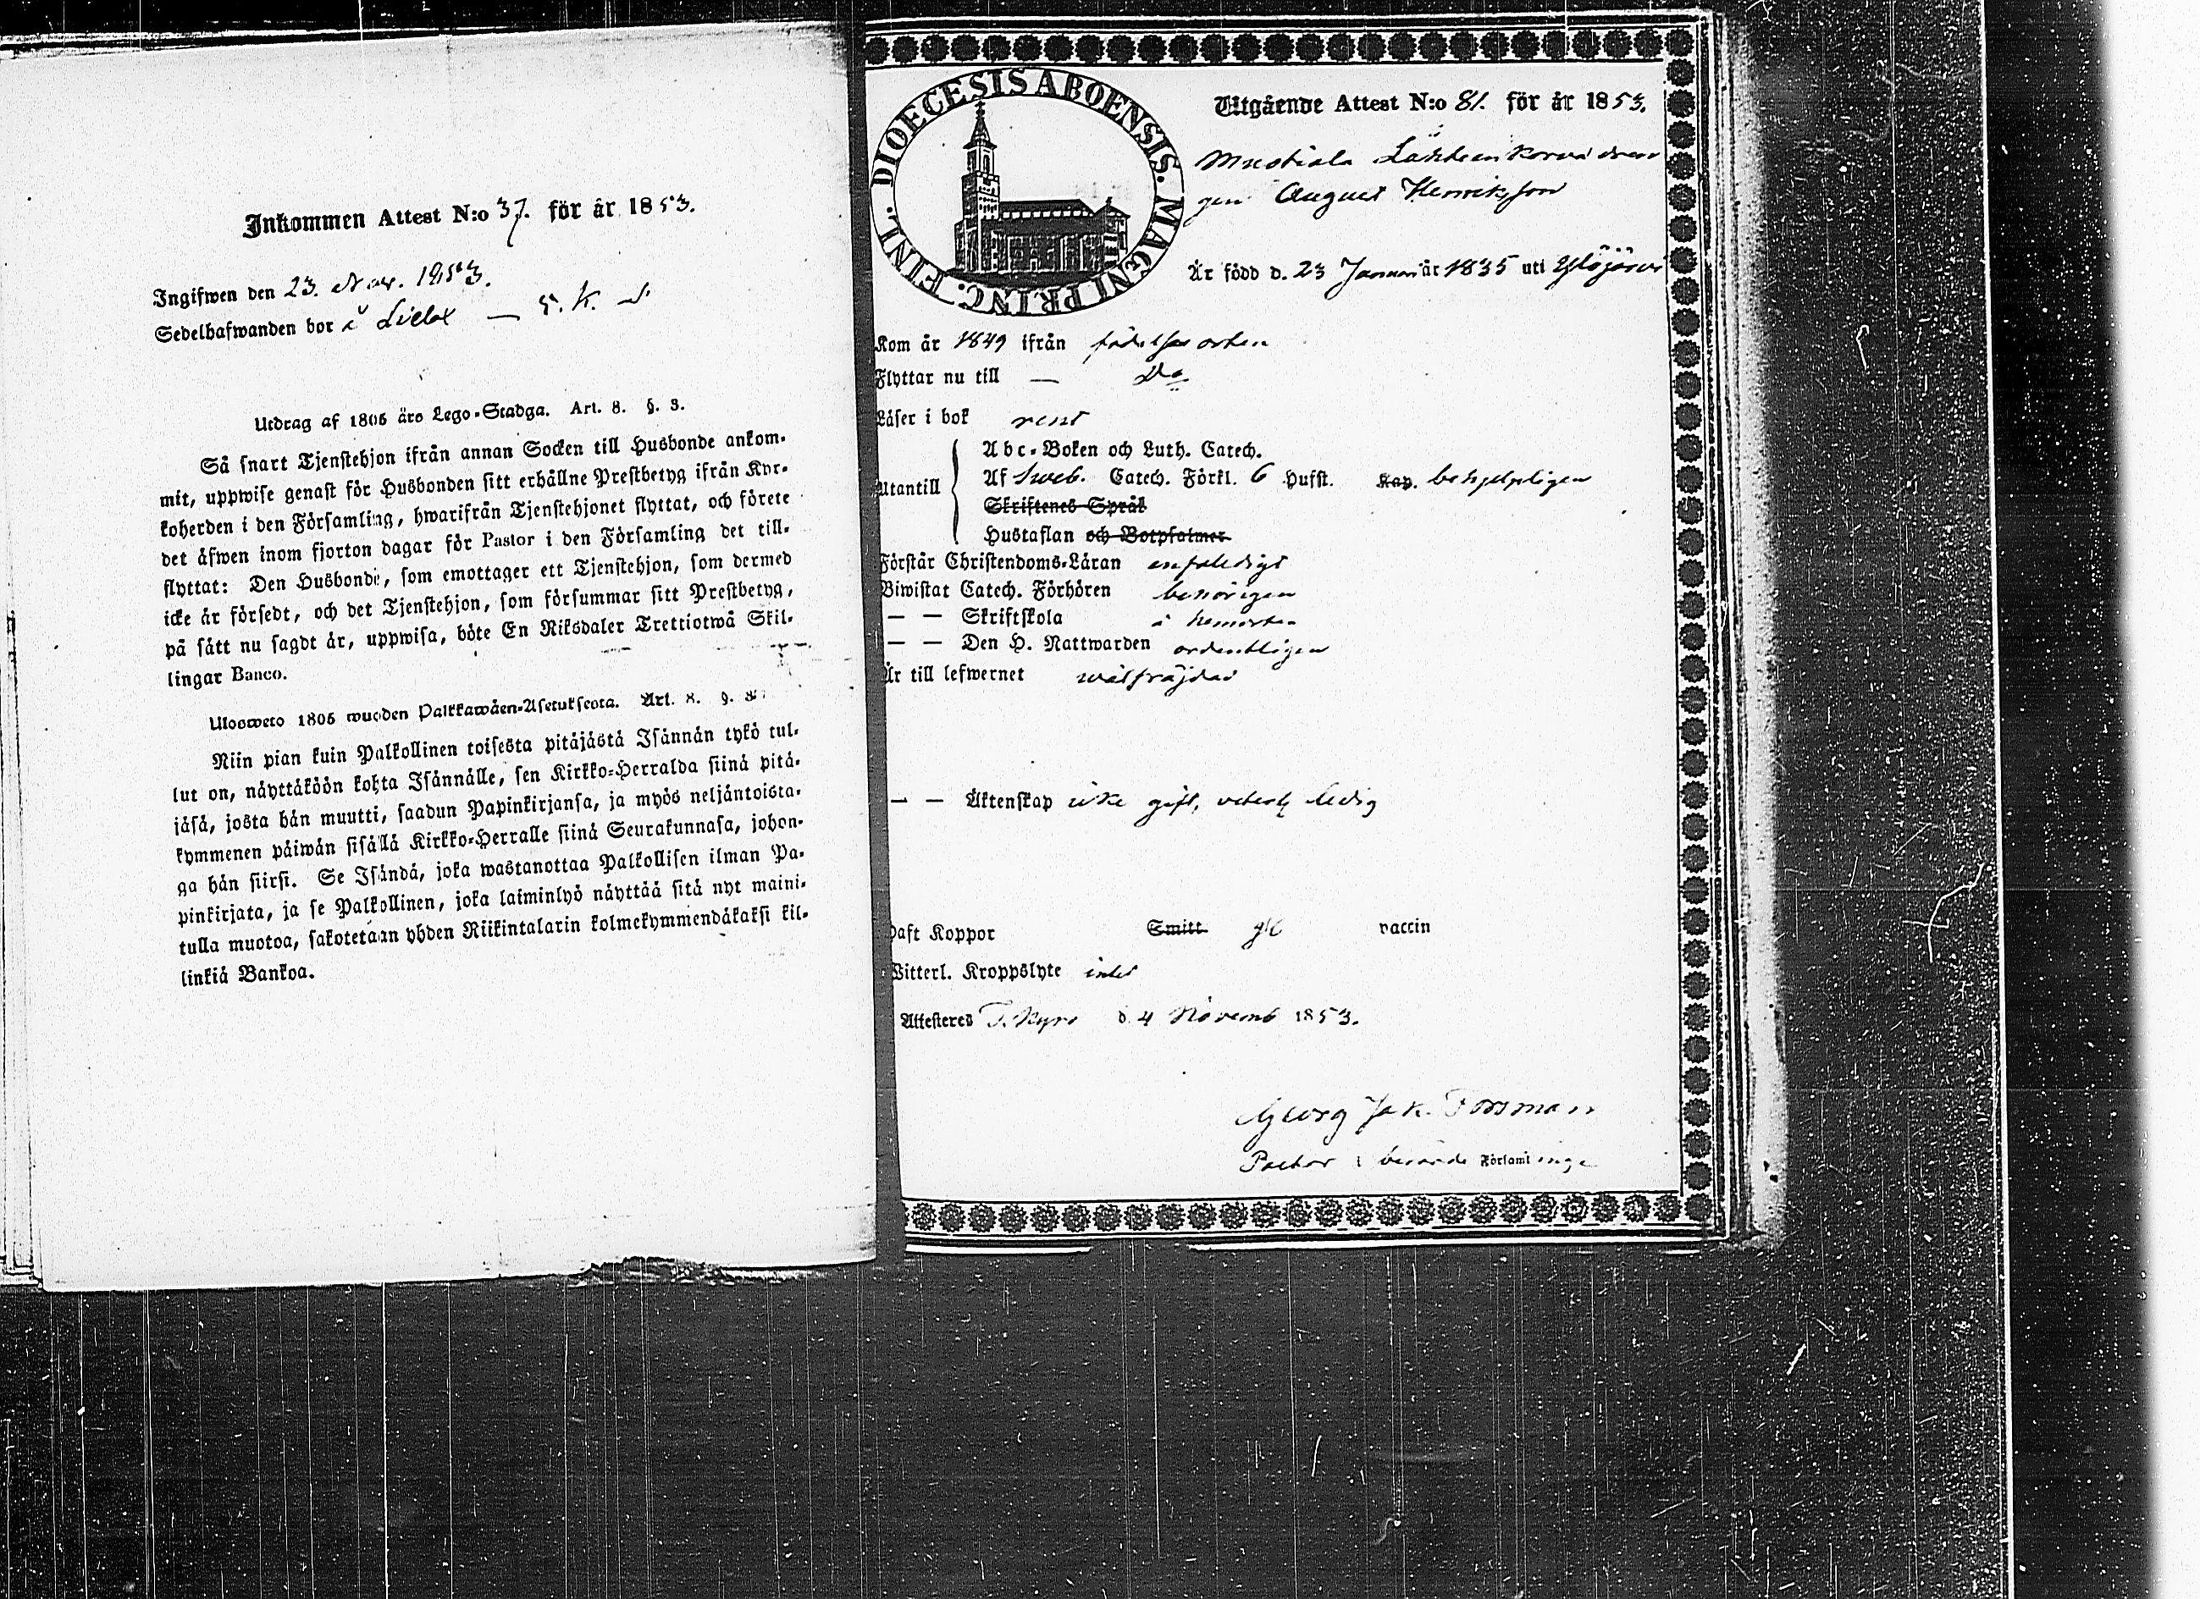 Inkommen Attest N:o 37. för år 1853.
Ingifwen den 23. Nov. 1853.
Sedelhafwanden bor å
Utdrag af 1805 års Lego-Stadga. Art. 8. §. 3.
Så snart Tjenstehjon ifrån annan Socken till Husbonde ankom-
mit, uppwise genast för Husbonden sitt erhållne Prestbetyg ifrån Kyr-
koherden i den Församling, hwarifrån Tjenstehjonet flyttat, och förete
det äfwen inom fjorton dagar för Pastor i den Församling det till-
flyttat: Den Husbonde, som emottager ett Tjenstehjon, som dermed
icke är försedt, och det Tjenstehjon, som försummar sitt Prestbetyg,
på sätt nu sagdt är, uppwisa, böte En Riksdaler Trettiotwå Skil-
lingar Banco.
Uloosweto 1805 wuoden Palkkawäen-Asetuksesta. Art. 8. §. 3.
Niin pian kuin Palkollinen toisesta pitäjästä Isännän tykö tul-
lut on, näyttäköön kohta Isännälle, sen Kirkko-Herralda siinä pitä-
jäsä, josta hän muutti, saadun Papinkirjansa, ja myös neljäntoista-
kymmenen päiwän sisällä Kirkko-Herralle siinä Seurakunnasa, johon-
ga hän siirsi. Se Isändä, joka wastanottaa Palkollisen ilman Pa-
pinkirjata, ja se Palkollinen, joka laiminlyö näyttää sitä nyt maini-
tulla muotoa, sakotetaan yhden Riikintalarin kolmekymmendäkaksi kil-
linkiä Bankoa.
DIOECESIS ABOENSIS. MAGNI PRINC. FINL.
Utgående Attest N:o 81. för år 1853.
Mustiala Lähteenkorva dren
gen August Henriksson
Är född d. 23 Januari år 1835 uti Ylöjärvi
Kom år 1849 ifrån födelse orten
Flyttar nu till — Do
Läser i bok rent
Utantill
Abc-Boken och Luth. Catech.
Af Sweb. Catech. Förkl. 6 Hufst. Kap. behjelpligen
Skriftenes Språk
Hustaflan och Botpsalmer
Förstår Christendoms-Läran enfaldigt
Biwistat Catech. Förhören behörigen
— — Skriftskola i hemorten
— — Den H. Nattwarden ordentligen
Är till lefwernet wälfräjdad
— — Äktenskap icke gift, weterl. ledig
Haft Koppor Smitt vaccin
Witterl. Kroppslyte intet
Attesteres T. Kyro d. 4 Novemb 1853.
Georg Jak. Forsman
Pastor i berörde Församlinge